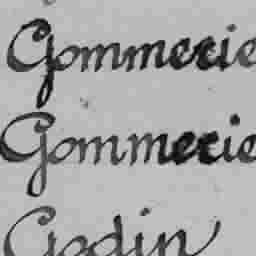 Gommerie
Gommerie
Godin